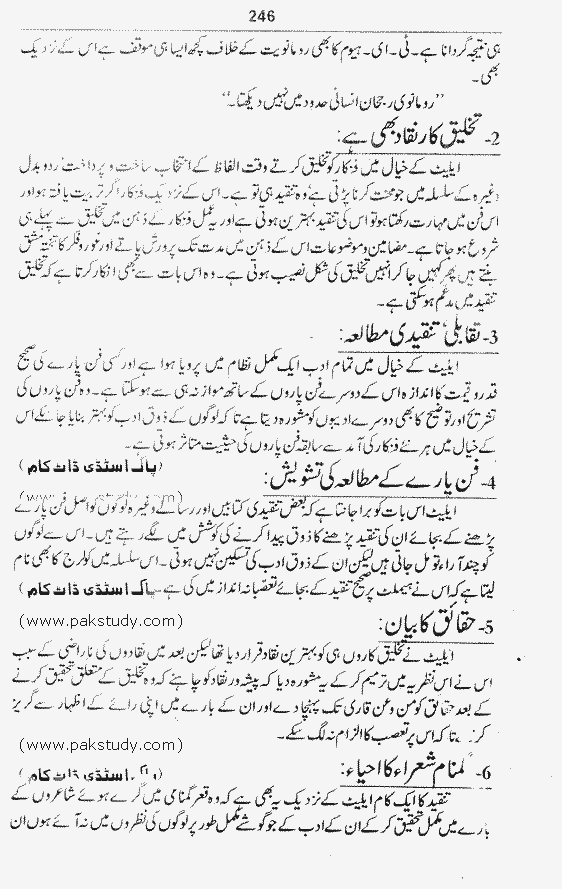 246
ہی نتیجہ گردانا ہے۔ ٹی۔ ای۔ ہیوم کا بھی رومانویت کے خلاف کچھ ایسا ہی موقف ہے اس کے نزدیک
بھی۔
’’رومانوی رجحان انسانی حدود میں نہیں دیکھتا۔‘‘
2- تخلیق کار نقاد بھی ہے:
ایلیٹ کے خیال میں فنکار کو تخلیق کرتے وقت الفاظ کے انتخاب ساخت و پرداخت ردو بدل
وغیرہ کے سلسلہ میں جو محنت کرنا پڑتی ہے وہ تنقید ہی تو ہے۔ اس کے نزدیک فنکار اگر تربیت یافتہ ہو اور
اس فن میں مہارت رکھتا ہو تو اس کی تنقید بہترین ہوتی ہے اور یہ عمل فنکار کے ذہن میں تخلیق سے پہلے ہی
شروع ہو جاتا ہے۔ مضامین و موضوعات اس کے ذہن میں مدت تک پرورش پاتے اور غور و فکر کا تختہ مشق
بنتے ہیں پھر کہیں جا کر انہیں تخلیق کی شکل نصیب ہوتی ہے۔ وہ اس بات سے بھی انکار کرتا ہے کہ تخلیق
تنقید میں مدغم ہو سکتی ہے۔
3- تقابلی تنقیدی مطالعہ:
ایلیٹ کے خیال میں تمام ادب ایک مکمل نظام میں پرویا ہوا ہے اور کسی فن پارے کی صحیح
قدر و قیمت کا اندازہ اس کے دوسرے فن پاروں کے ساتھ موازنہ ہی سے ہو سکتا ہے۔ وہ فن پاروں کی
تشریح اور توضیح کا بھی دوسرے ادیبوں کو مشورہ دیتا ہے تا کہ لوگوں کے ذوق ادب کو بہتر بنایا جا سکے اس
کے خیال میں ہر نئے فنکار کی آمد سے سابقہ فن پاروں کی حیثیت متاثر ہوتی ہے۔
(پاک اسٹڈی ڈاٹ کام)
4- فن پارے کے مطالعہ کی تشویش:
(www.pakstudy.com)
ایلیٹ اس بات کو برا جانتا ہے کہ بعض تنقیدی کتابیں اور رسالے وغیرہ لوگوں کو اصل فن پارے
پڑھنے کے بجائے ان کی تنقید پڑھنے کا ذوق پیدا کرنے کی کوشش میں لگے رہتے ہیں۔ اس سے لوگوں
کو چند آراء تو مل جاتی ہیں لیکن ان کے ذوق ادب کی تسکین نہیں ہوتی۔ اس سلسلہ میں کولرج کا بھی نام
لیتا ہے کہ اس نے ہیملٹ پر صحیح تنقید کے بجائے تعصبانہ انداز میں کی ہے۔ پاک اسٹڈی ڈاٹ کام
5- حقائق کا بیان:
(www.pakstudy.com)
ایلیٹ نے تخلیق کاروں ہی کو بہترین نقاد قرار دیا تھا لیکن بعد میں نقادوں کی ناراضی کے سبب
اس نے اس نظریہ میں ترمیم کر کے یہ مشورہ دیا کہ پیشہ ور نقاد کو چاہئے کہ وہ تخلیق کے متعلق تحقیق کرنے
کے بعد حقائق کو من و عن قاری تک پہنچا دے اور ان کے بارے میں اپنی رائے کے اظہار سے گریز
کرے تا کہ اس پر تعصب کا الزام نہ لگ سکے۔
(www.pakstudy.com)
6- گمنام شعراء کا احیاء:
(پاک اسٹڈی ڈاٹ کام)
تنقید کا ایک کام ایلیٹ کے نزدیک یہ بھی ہے کہ وہ قعر گمنامی میں گرے ہوئے شاعروں کے
بارے میں مکمل تحقیق کر کے ان کے ادب کے جو گوشے مکمل طور پر لوگوں کی نظروں میں نہ آئے ہوں ان